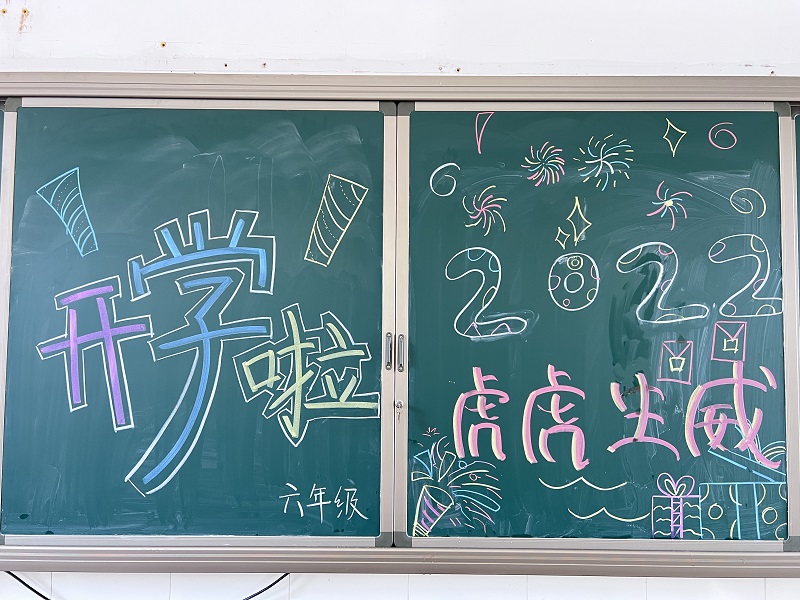 开学啦
六年级
2022
虎虎生威